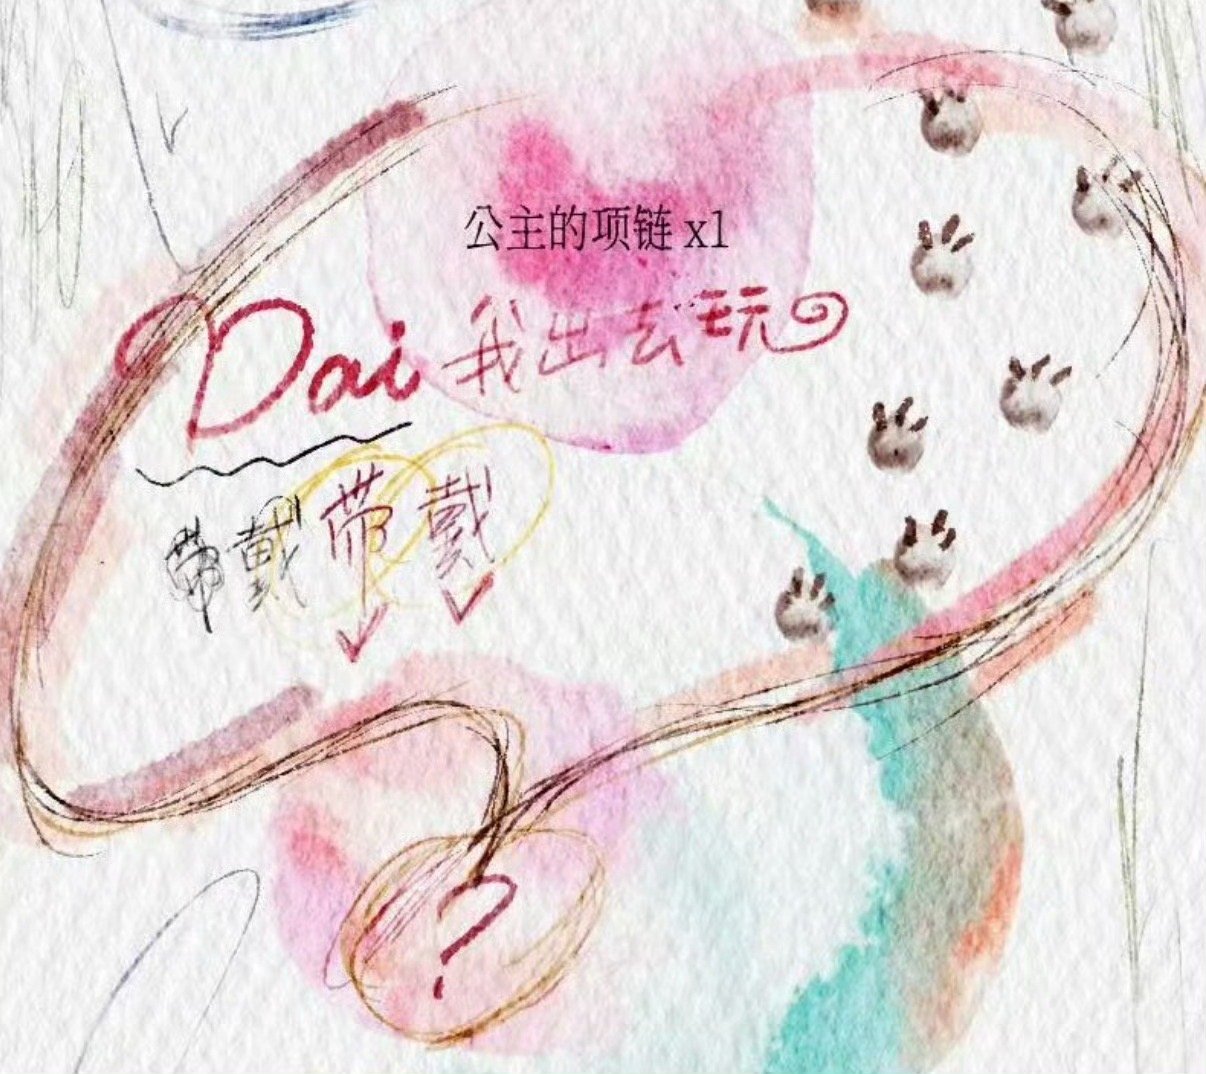 公主的项链 x1
Dai 我出去玩
带戴带戴
?